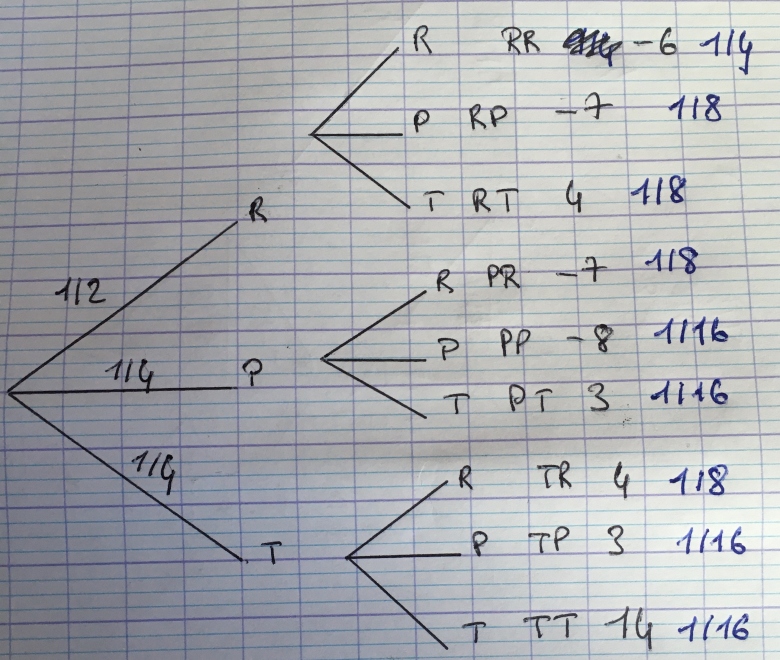 R RR -6 1/4
P RP -7 1/8
T RT 4 1/8
R
1/2
R PR -7 1/8
P PP -8 1/16
1/4 P
T PT 3 1/16
1/4
R TR 4 1/8
T
P TP 3 1/16
T TT 14 1/16